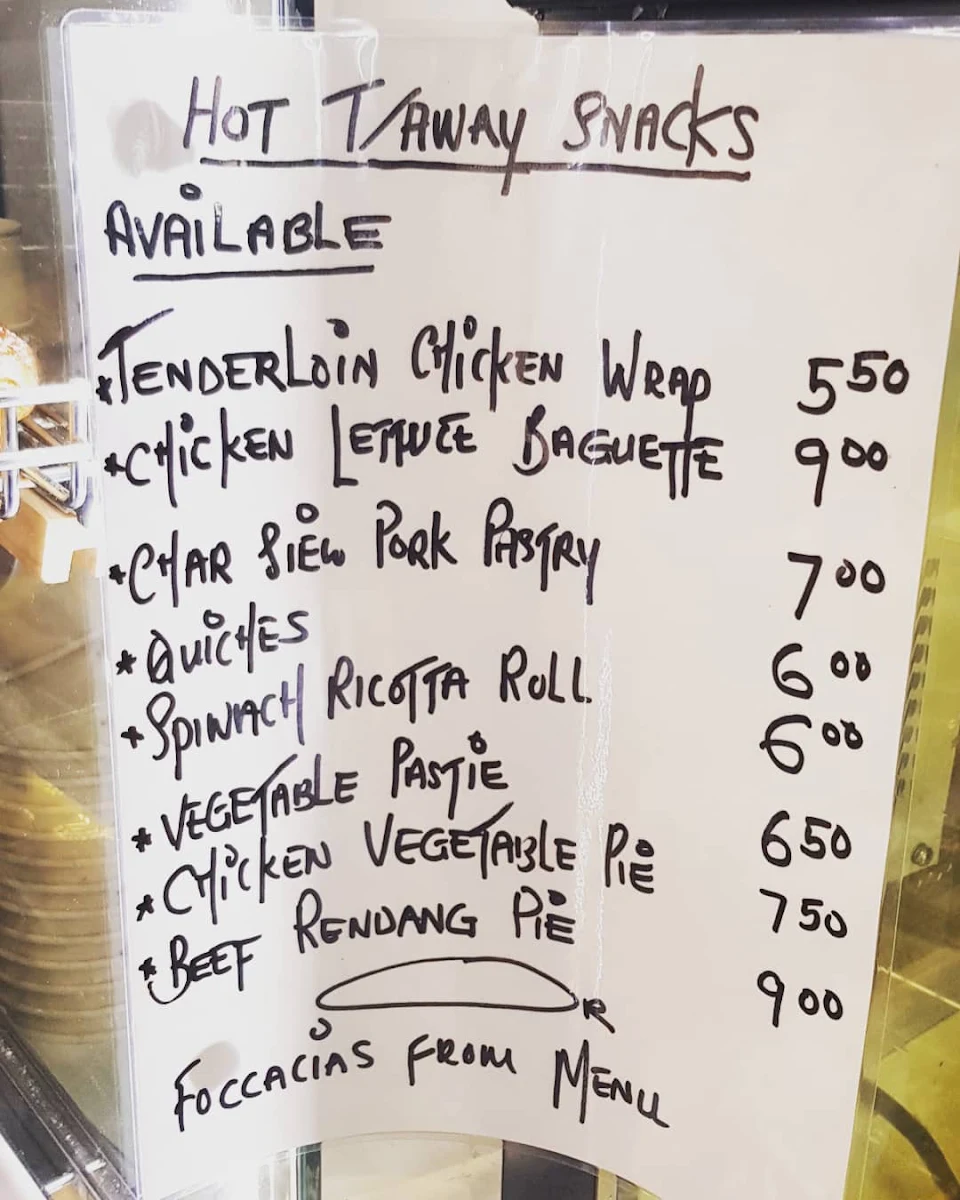 HOT T/AWAY SNACKS
AVAILABLE
*TENDERLOIN CHICKEN WRAP 5 50
*CHICKEN LETTUCE BAGUETTE 9 00
*CHAR SIEW PORK PASTRY 7 00
*QUICHES 6 00
*SPINACH RICOTTA ROLL 6 00
*VEGETABLE PASTIE 6 50
*CHICKEN VEGETABLE PIE 7 50
*BEEF RENDANG PIE 9 00
OR
FOCCACIAS FROM MENU